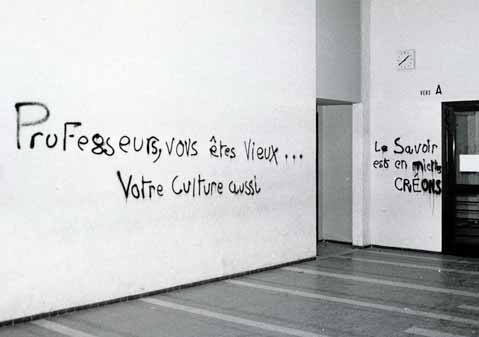 ProFesseurs, vous êtes Vieux...
Votre Culture aussi
VERS A
Le Savoir
ests en miettes
CRÉONS